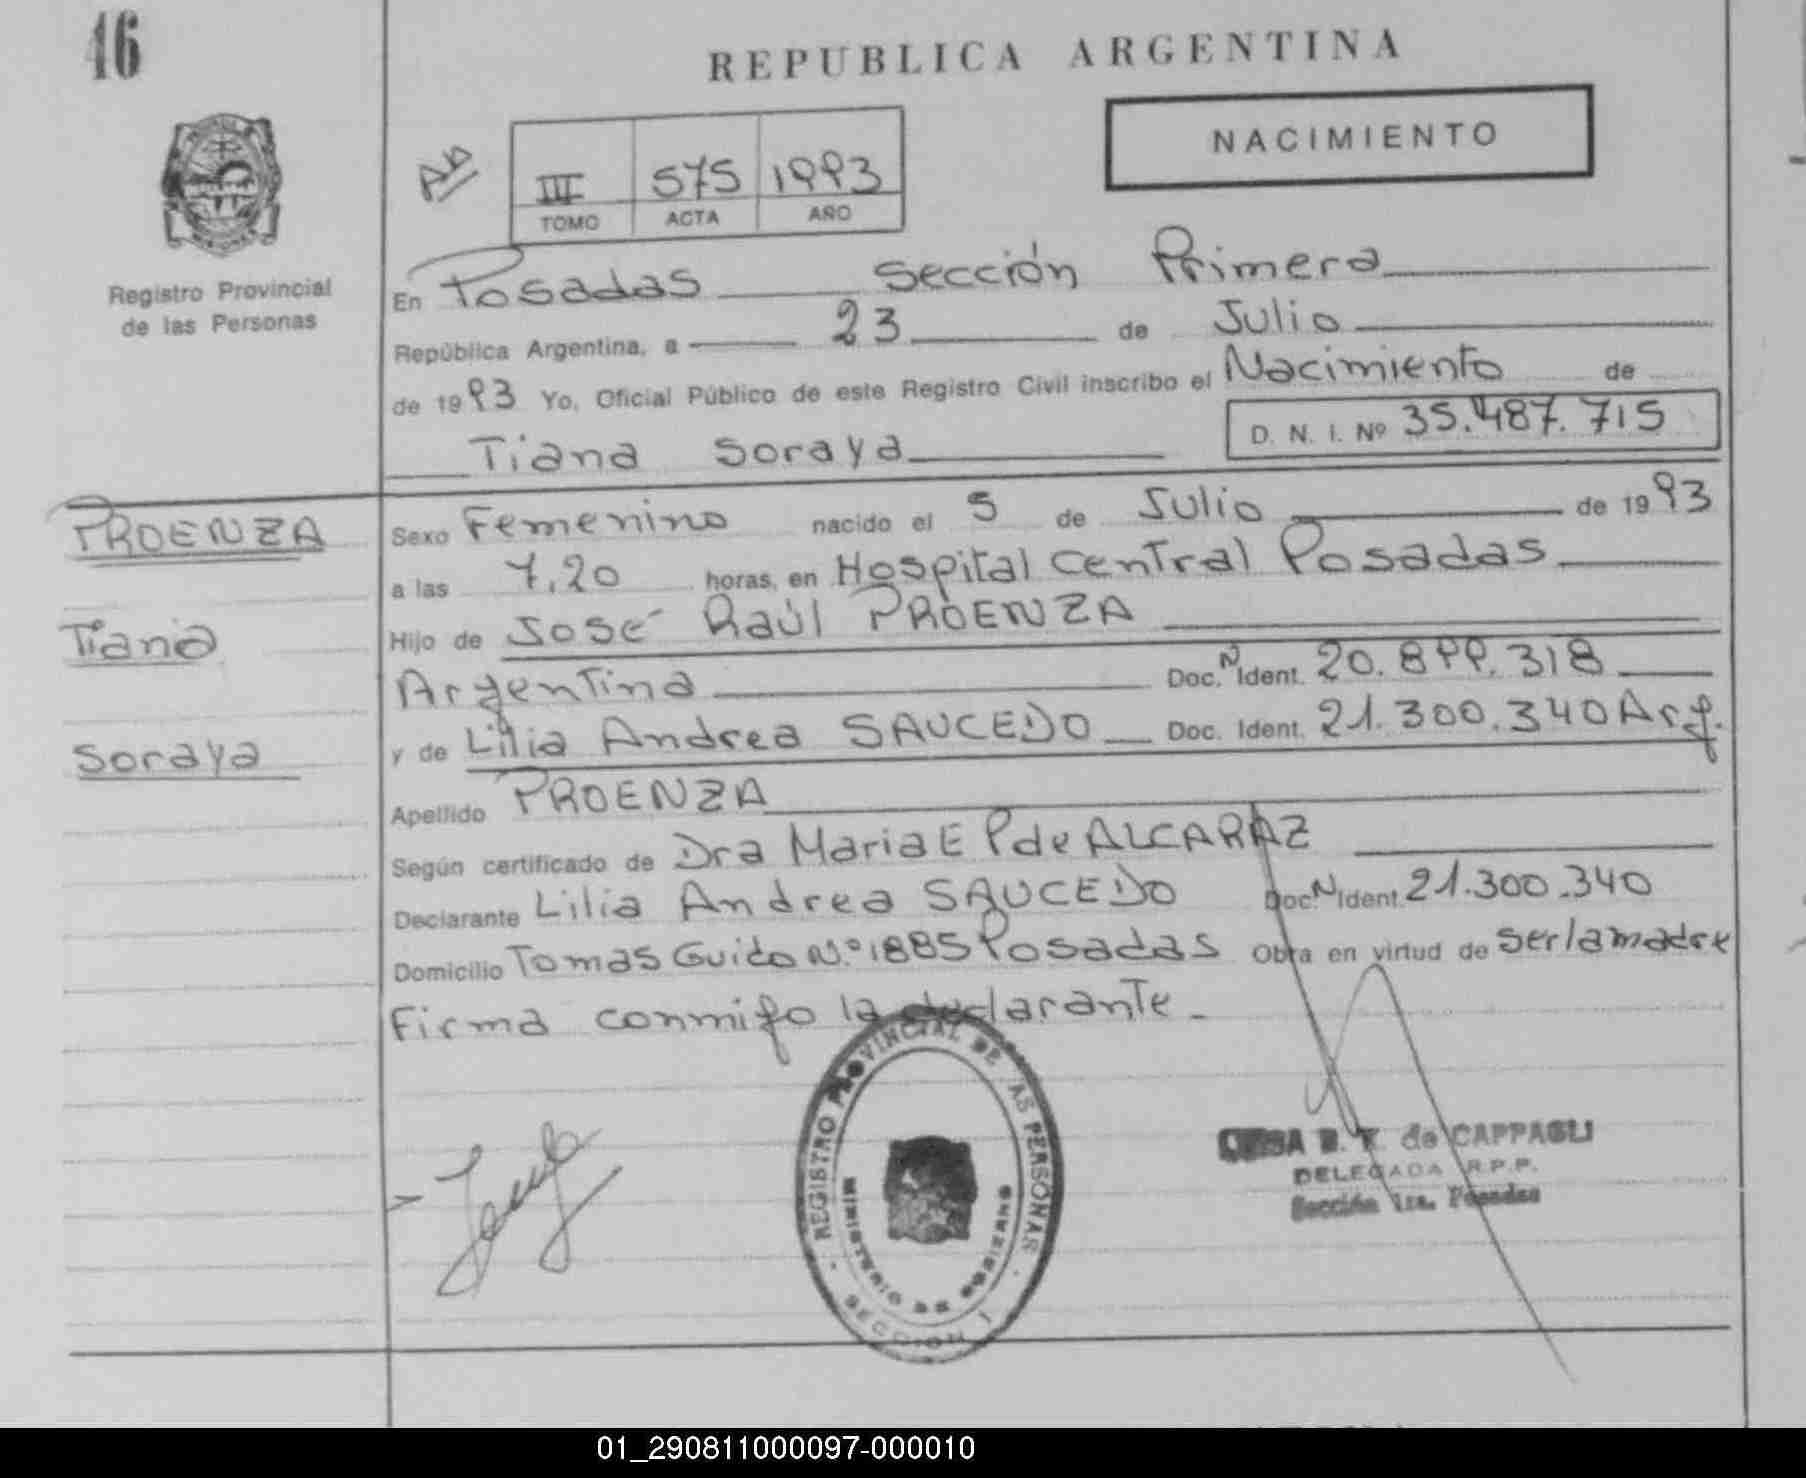 46
REPUBLICA ARGENTINA
NACIMIENTO
III 575 1993
TOMO ACTA AÑO
Registro Provincial
de las Personas
En Posadas Sección Primera
República Argentina, a 23 de Julio
de 1993 Yo, Oficial Público de este Registro Civil inscribo el Nacimiento de
Tiana Soraya D. N. I. Nº 35.487.715
PROENZA
Tiana
Soraya
Sexo Femenino nacido el 5 de Julio de 1993
a las 7,20 horas, en Hospital Central Posadas
Hijo de José Raúl PROENZA
Argentina Doc. N Ident. 20.899.318
y de Lilia Andrea SAUCEDO Doc. Ident. 21.300.340 Arg.
Apellido PROENZA
Según certificado de Dra Maria E P de ALCARAZ
Declarante Lilia Andrea SAUCEDO Doc. N Ident. 21.300.340
Domicilio Tomas Guido N.º 1885 Posadas Obra en virtud de ser la madre
Firma conmigo la declarante.
REGISTRO PROVINCIAL DE LAS PERSONAS
MINISTERIO DE GOBIERNO
SECCION 1
de CAPPAGLI
DELEGADA R.P.P.
Sección 1ra. Posadas
01_290811000097-000010